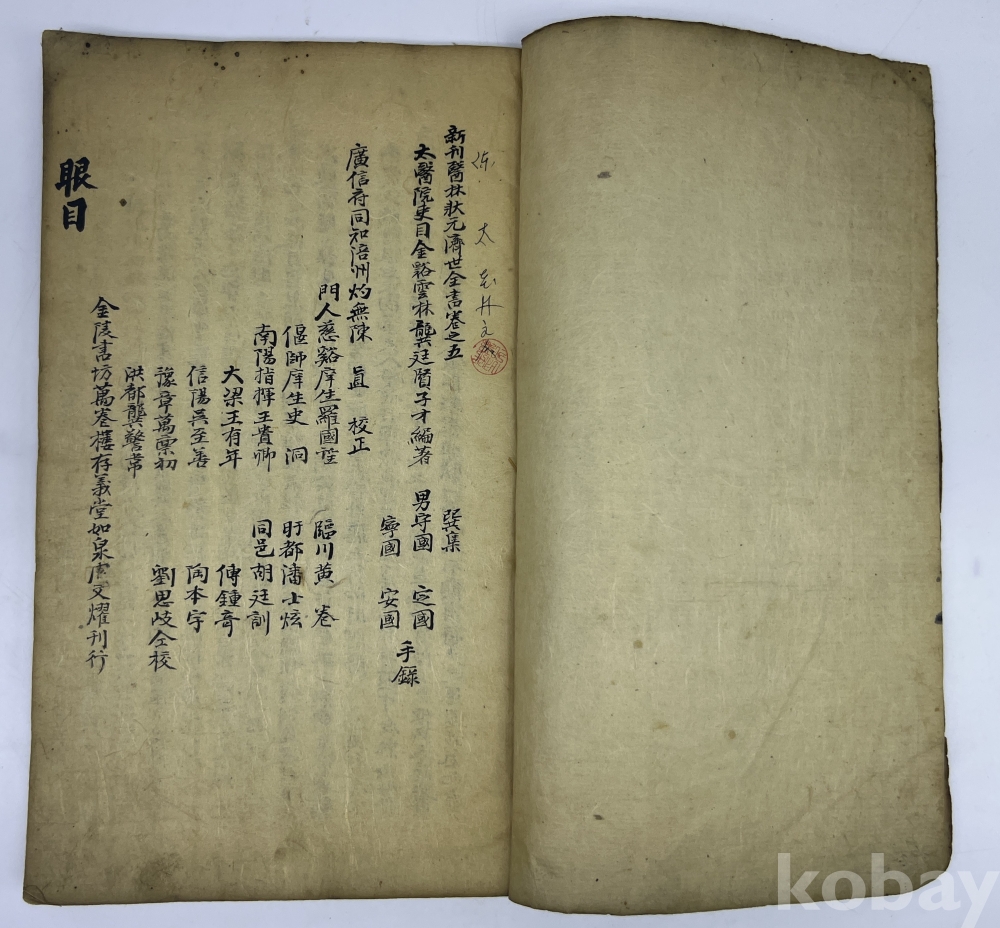 新刊醫林狀元濟世全書卷之五
巽集
太醫院吏目金谿雲林龔廷賢子才編著
男守國 定國
寧國 安國
手錄
廣信府同知涪州灼無陳 眞 校正
門人慈谿庠生羅國望
臨川黄 卷
偃師庠生史 洞
盱都潘士炫
南陽指揮王貴卿
同邑胡廷訓
大梁王有年
傅鍾竒
信陽吳至善
陶本宇
豫章萬稟初
劉思岐仝校
洪都龔警常
金陵書坊萬卷樓存義堂如泉唐文耀刊行
眼目
kobay